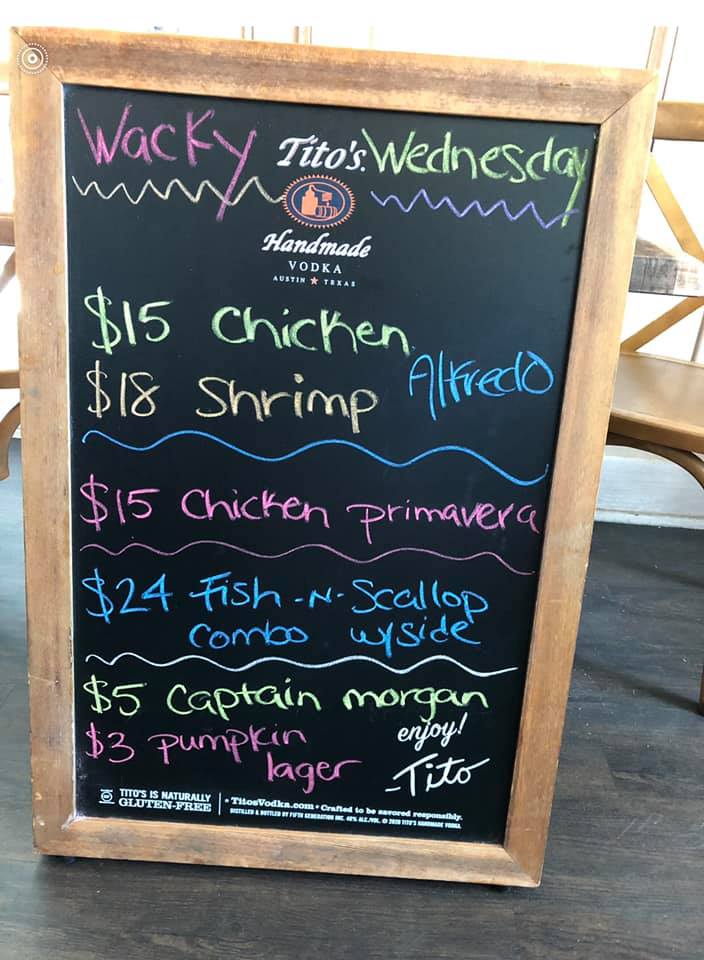 Wacky Tito's. Wednesday
Handmade
VODKA
AUSTIN ★ TEXAS
$15 Chicken
$18 Shrimp Alfredo
$15 Chicken primavera
$24 Fish-N-Scallop
combo w/side
$5 Captain morgan
$3 pumpkin
lager
enjoy!
-Tito
TITO'S IS NATURALLY
GLUTEN-FREE
• TitosVodka.com • Crafted to be savored responsibly.
DISTILLED & BOTTLED BY FIFTH GENERATION INC. 40% ALC./VOL. © 2020 TITO'S HANDMADE VODKA.